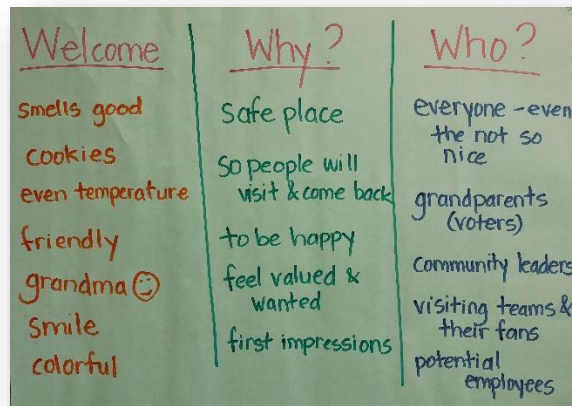 Welcome
smells good
cookies
even temperature
friendly
grandma☺
smile
colorful
Why?
safe place
so people will
visit & come back
to be happy
feel valued &
wanted
first impressions
Who?
everyone - even
the not so
nice
grandparents
(voters)
community leaders
visiting teams &
their fans
potential
employees